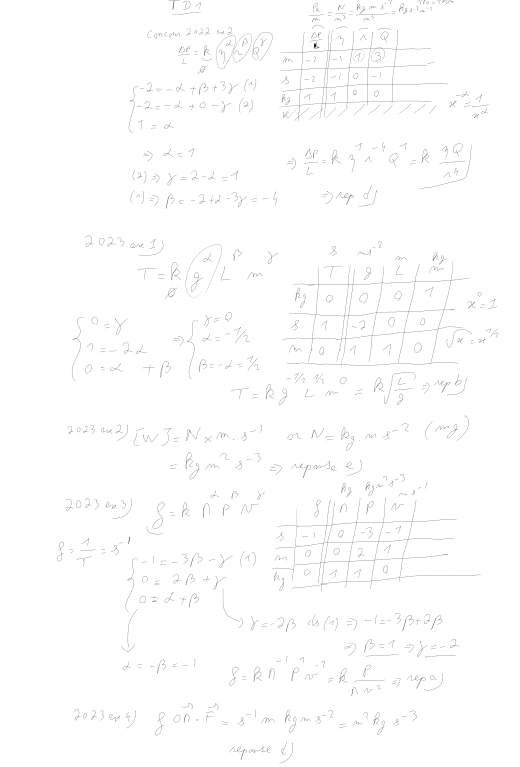 TD1
Pa/m = N/m³ = kg m s⁻²/m³ = kg s⁻² m⁻²
Concours 2022 ex2
ΔP/L = k η^α r^β Q^γ
ΔP/L η r Q
m -2 -1 1 3
s -2 -1 0 -1
kg 1 1 0 0
{ -2 = -α + β + 3γ (1)
-2 = -α + 0 - γ (2)
1 = α
x^-α = 1/x^α
=> α = 1
(2) => γ = 2 - α = 1
(1) => β = -2 + α - 3γ = -4
=> ΔP/L = k η¹ r⁻⁴ Q¹ = k ηQ/r⁴
=> rep d)
2023 ex1)
T = k g^α L^β m^γ
s ms⁻² m kg
T g L m
kg 0 0 0 1
s 1 -2 0 0
m 0 1 1 0
x⁰ = 1
√x = x^1/2
{ 0 = γ
1 = -2α
0 = α + β
=> { γ = 0
α = -1/2
β = -α = 1/2
T = k g^-1/2 L^1/2 m^0 = k √(L/g) => rep b)
2023 ex2) [W] = N × m . s⁻¹ or N = kg . m s⁻² (mg)
= kg m² s⁻³ => reponse e)
2023 ex3) f = k Π^α P^β v^γ
kg kg m² s⁻³ m s⁻¹
f Π P v
s -1 0 -3 -1
m 0 0 2 1
kg 0 1 1 0
f = 1/T = s⁻¹
{ -1 = -3β - γ (1)
0 = 2β + γ
0 = α + β
γ = -2β ds (1) => -1 = -3β + 2β
=> β = 1 => γ = -2
α = -β = -1
f = k Π⁻¹ P¹ v⁻² = k P/(Π v²) => rep a)
2023 ex4) f OΠ . F = s⁻¹ m kg m s⁻² = m² kg s⁻³
reponse d)